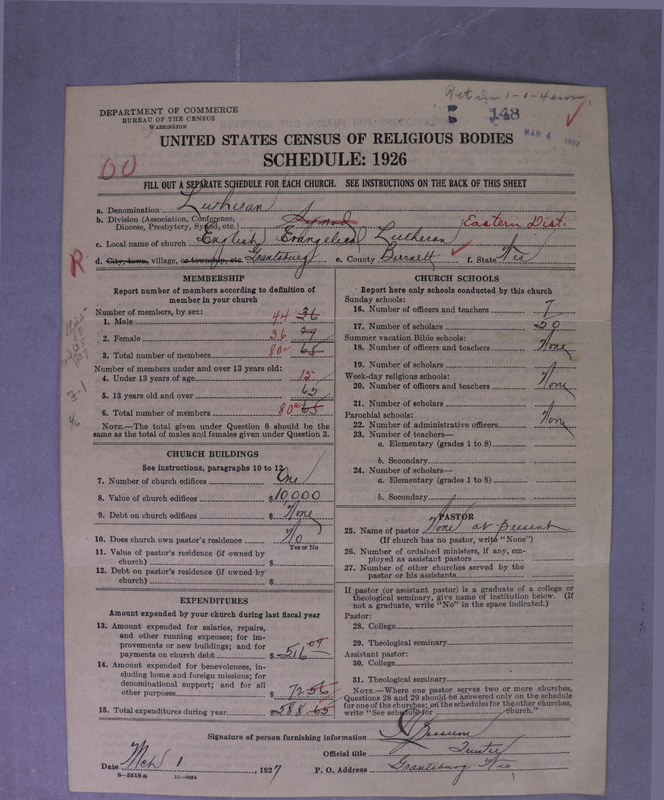 148
MAR 4 1927
DEPARTMENT OF COMMERCE
BUREAU OF THE CENSUS
WASHINGTON
UNITED STATES CENSUS OF RELIGIOUS BODIES
SCHEDULE: 1926
00
FILL OUT A SEPARATE SCHEDULE FOR EACH CHURCH. SEE INSTRUCTIONS ON THE BACK OF THIS SHEET
a. Denomination Lutheran
b. Division (Association, Conference, Diocese, Presbytery, Synod, etc.) Synod Eastern Dist.
c. Local name of church English Evangelical Lutheran
d. City, town, village, or township, etc. Grantsburg e. County Burnett f. State Wis
R
MEMBERSHIP
Report number of members according to definition of member in your church
Number of members, by sex:
1. Male 44 36
2. Female 36 29
3. Total number of members 80 65
Number of members under and over 13 years old:
4. Under 13 years of age 15
5. 13 years old and over 65
6. Total number of members 80 65
NOTE.—The total given under Question 6 should be the same as the total of males and females given under Question 3.
CHURCH BUILDINGS
See instructions, paragraphs 10 to 12
7. Number of church edifices One
8. Value of church edifices $10,000
9. Debt on church edifices $ None
10. Does church own pastor's residence No
Yes or No
11. Value of pastor's residence (if owned by church) $
12. Debt on pastor's residence (if owned by church) $
EXPENDITURES
Amount expended by your church during last fiscal year
13. Amount expended for salaries, repairs, and other running expenses; for improvements or new buildings; and for payments on church debt $516.09
14. Amount expended for benevolences, including home and foreign missions; for denominational support; and for all other purposes $72.56
15. Total expenditures during year 588.65
CHURCH SCHOOLS
Report here only schools conducted by this church
Sunday schools:
16. Number of officers and teachers 7
17. Number of scholars 50
Summer vacation Bible schools:
18. Number of officers and teachers None
19. Number of scholars
Week-day religious schools:
20. Number of officers and teachers None
21. Number of scholars
Parochial schools:
22. Number of administrative officers None
23. Number of teachers—
a. Elementary (grades 1 to 8)
b. Secondary
24. Number of scholars—
a. Elementary (grades 1 to 8)
b. Secondary
PASTOR
25. Name of pastor None at present
(If church has no pastor, write "None")
26. Number of ordained ministers, if any, employed as assistant pastors
27. Number of other churches served by the pastor or his assistants
If pastor (or assistant pastor) is a graduate of a college or theological seminary, give name of institution below. (If not a graduate, write "No" in the space indicated.)
Pastor:
28. College
29. Theological seminary
Assistant pastor:
30. College
31. Theological seminary
NOTE.—Where one pastor serves two or more churches, Questions 28 and 29 should be answered only on the schedule for one of the churches; on the schedules for the other churches, write "See schedule for church."
Signature of person furnishing information
Official title Trustee
Date Mch 1, 1927 P. O. Address Grantsburg Wis
8-5318a 11-9034